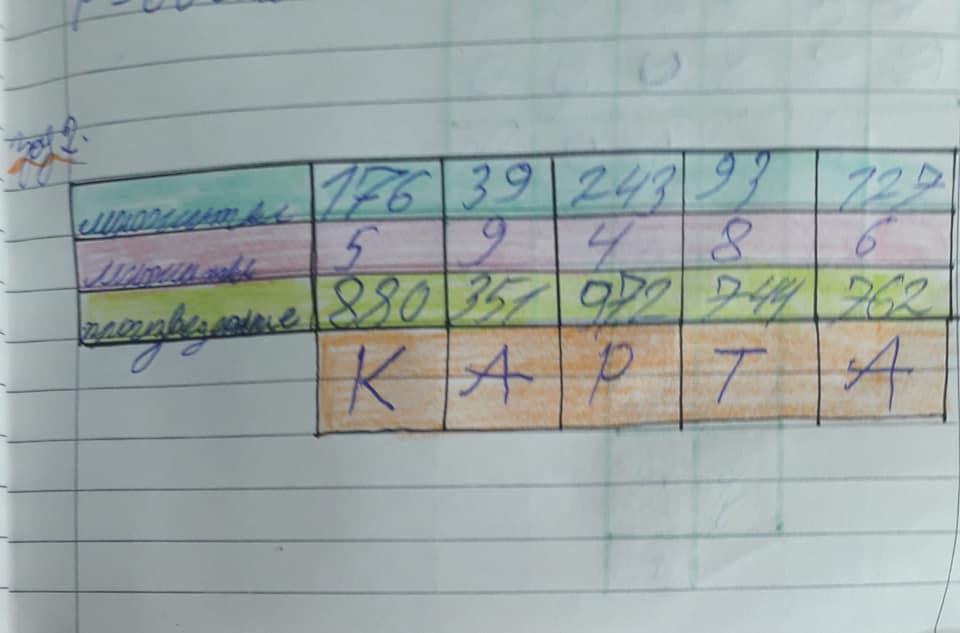 множитель 176 39 243 93 127
множитель 5 9 4 8 6
произведение 880 351 972 744 762
К А Р Т А